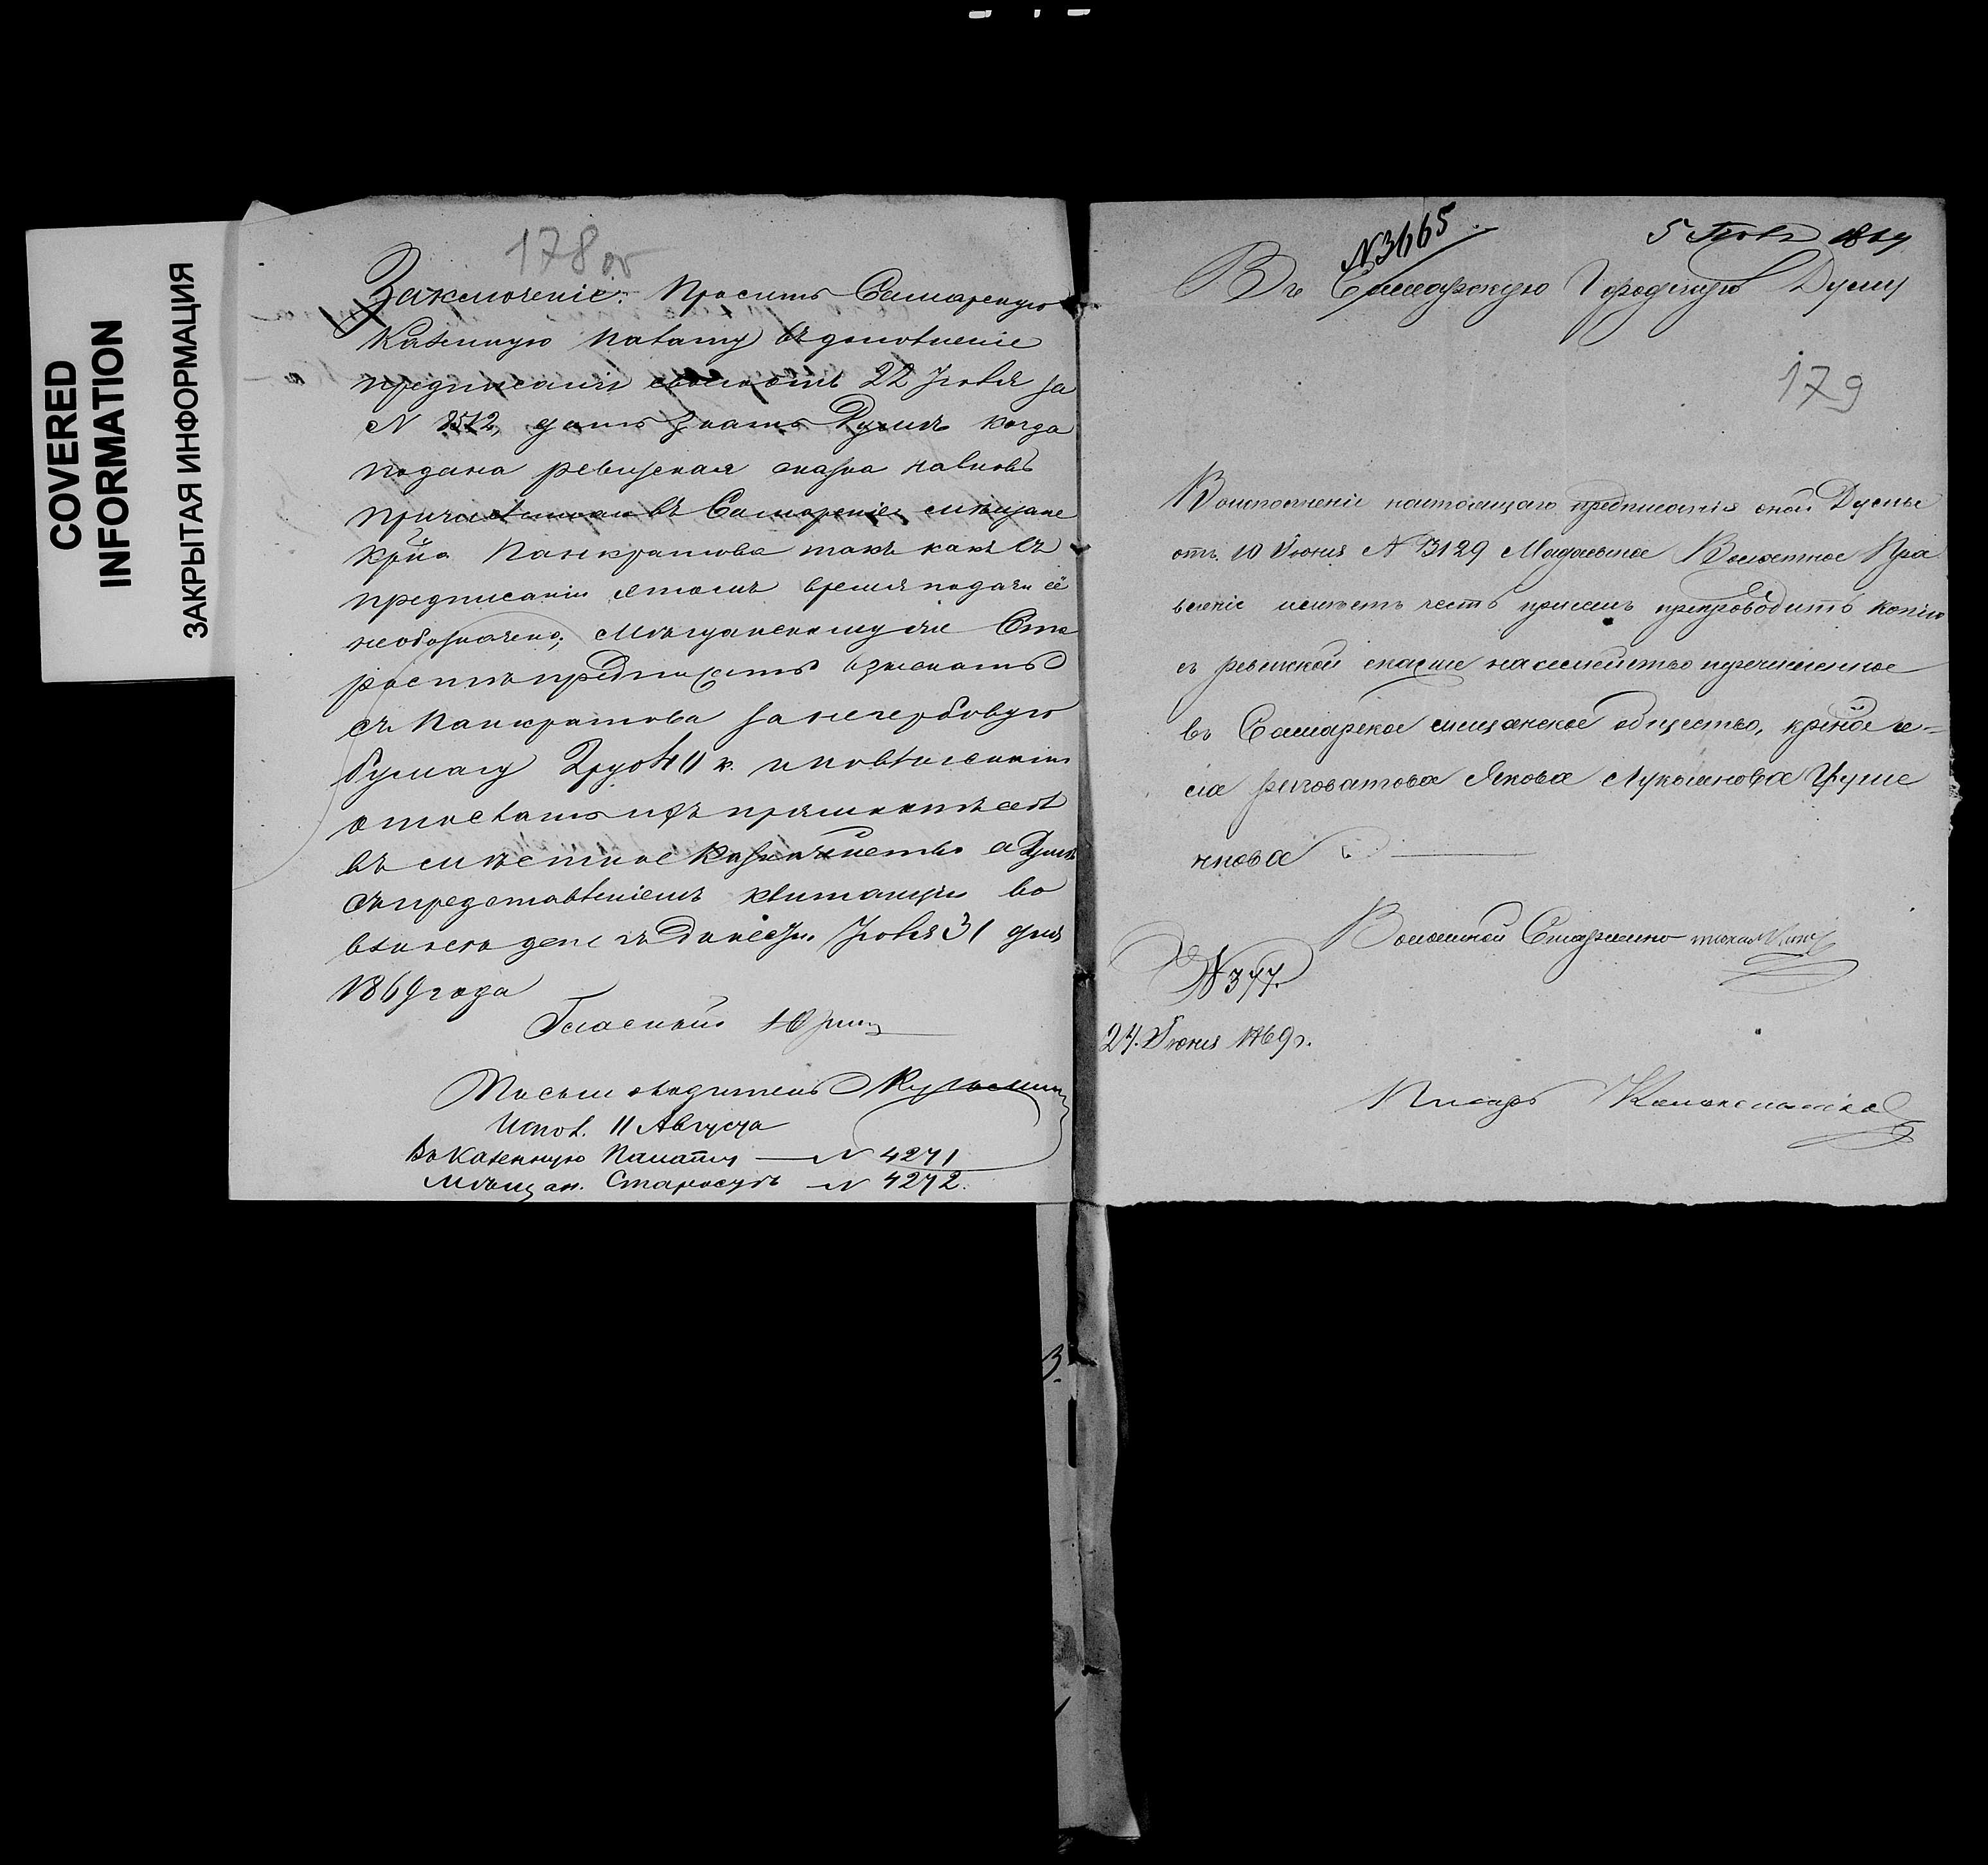 COVERED
INFORMATION
ЗАКРЫТАЯ ИНФОРМАЦИЯ
178 об
Заключеніе: Просить Самарскую
Казенную Палату въ дополненіе
предписанія своего отъ 22 Іюля за
N 8512, дать знать Думѣ когда
подана ревизская сказка на вновь
причисленнаго въ Самарскіе мѣщане
кр-на Панкратова такъ какъ въ
предписаніи этомъ время подачи её
необозначено; Мѣщанскому же Ста
ростѣ предписать взыскать
съ Панкратова за негербовую
бумагу 2 руб 40 к. и по взысканіи
отослать ихъ прямо отъ себя
въ мѣстное Казначейство а Думѣ
съ представленіемъ квитанціи во
взносѣ денегъ донести. Іюля 31 дня
1869 года
Гласный
Письмоводитель
Испол. 11 Августа
Въ Казенную Палату — N 4271
Мѣщан. Старостѣ — N 4272.
N 3665
5 Іюля 1869
Въ Самарскую Городскую Думу
179
Во исполненіе настоящаго предписанія оной Думы
отъ 10 Іюня N 3129 Волостное Пра
вленіе имѣетъ честь при семъ препроводить копію
съ ревизской сказки на семейство перечисленное
въ Самарское мѣщанское общество, кр-на се=
ла Якова Лукьянова
чкова
Волостной Старшина
N 377.
24. Іюня 1869 г.
Писарь